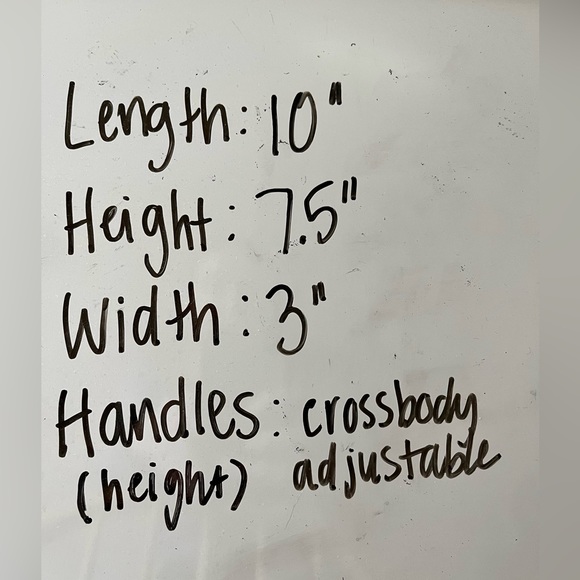 Length: 10"
Height: 7.5"
Width: 3"
Handles: crossbody
(height) adjustable